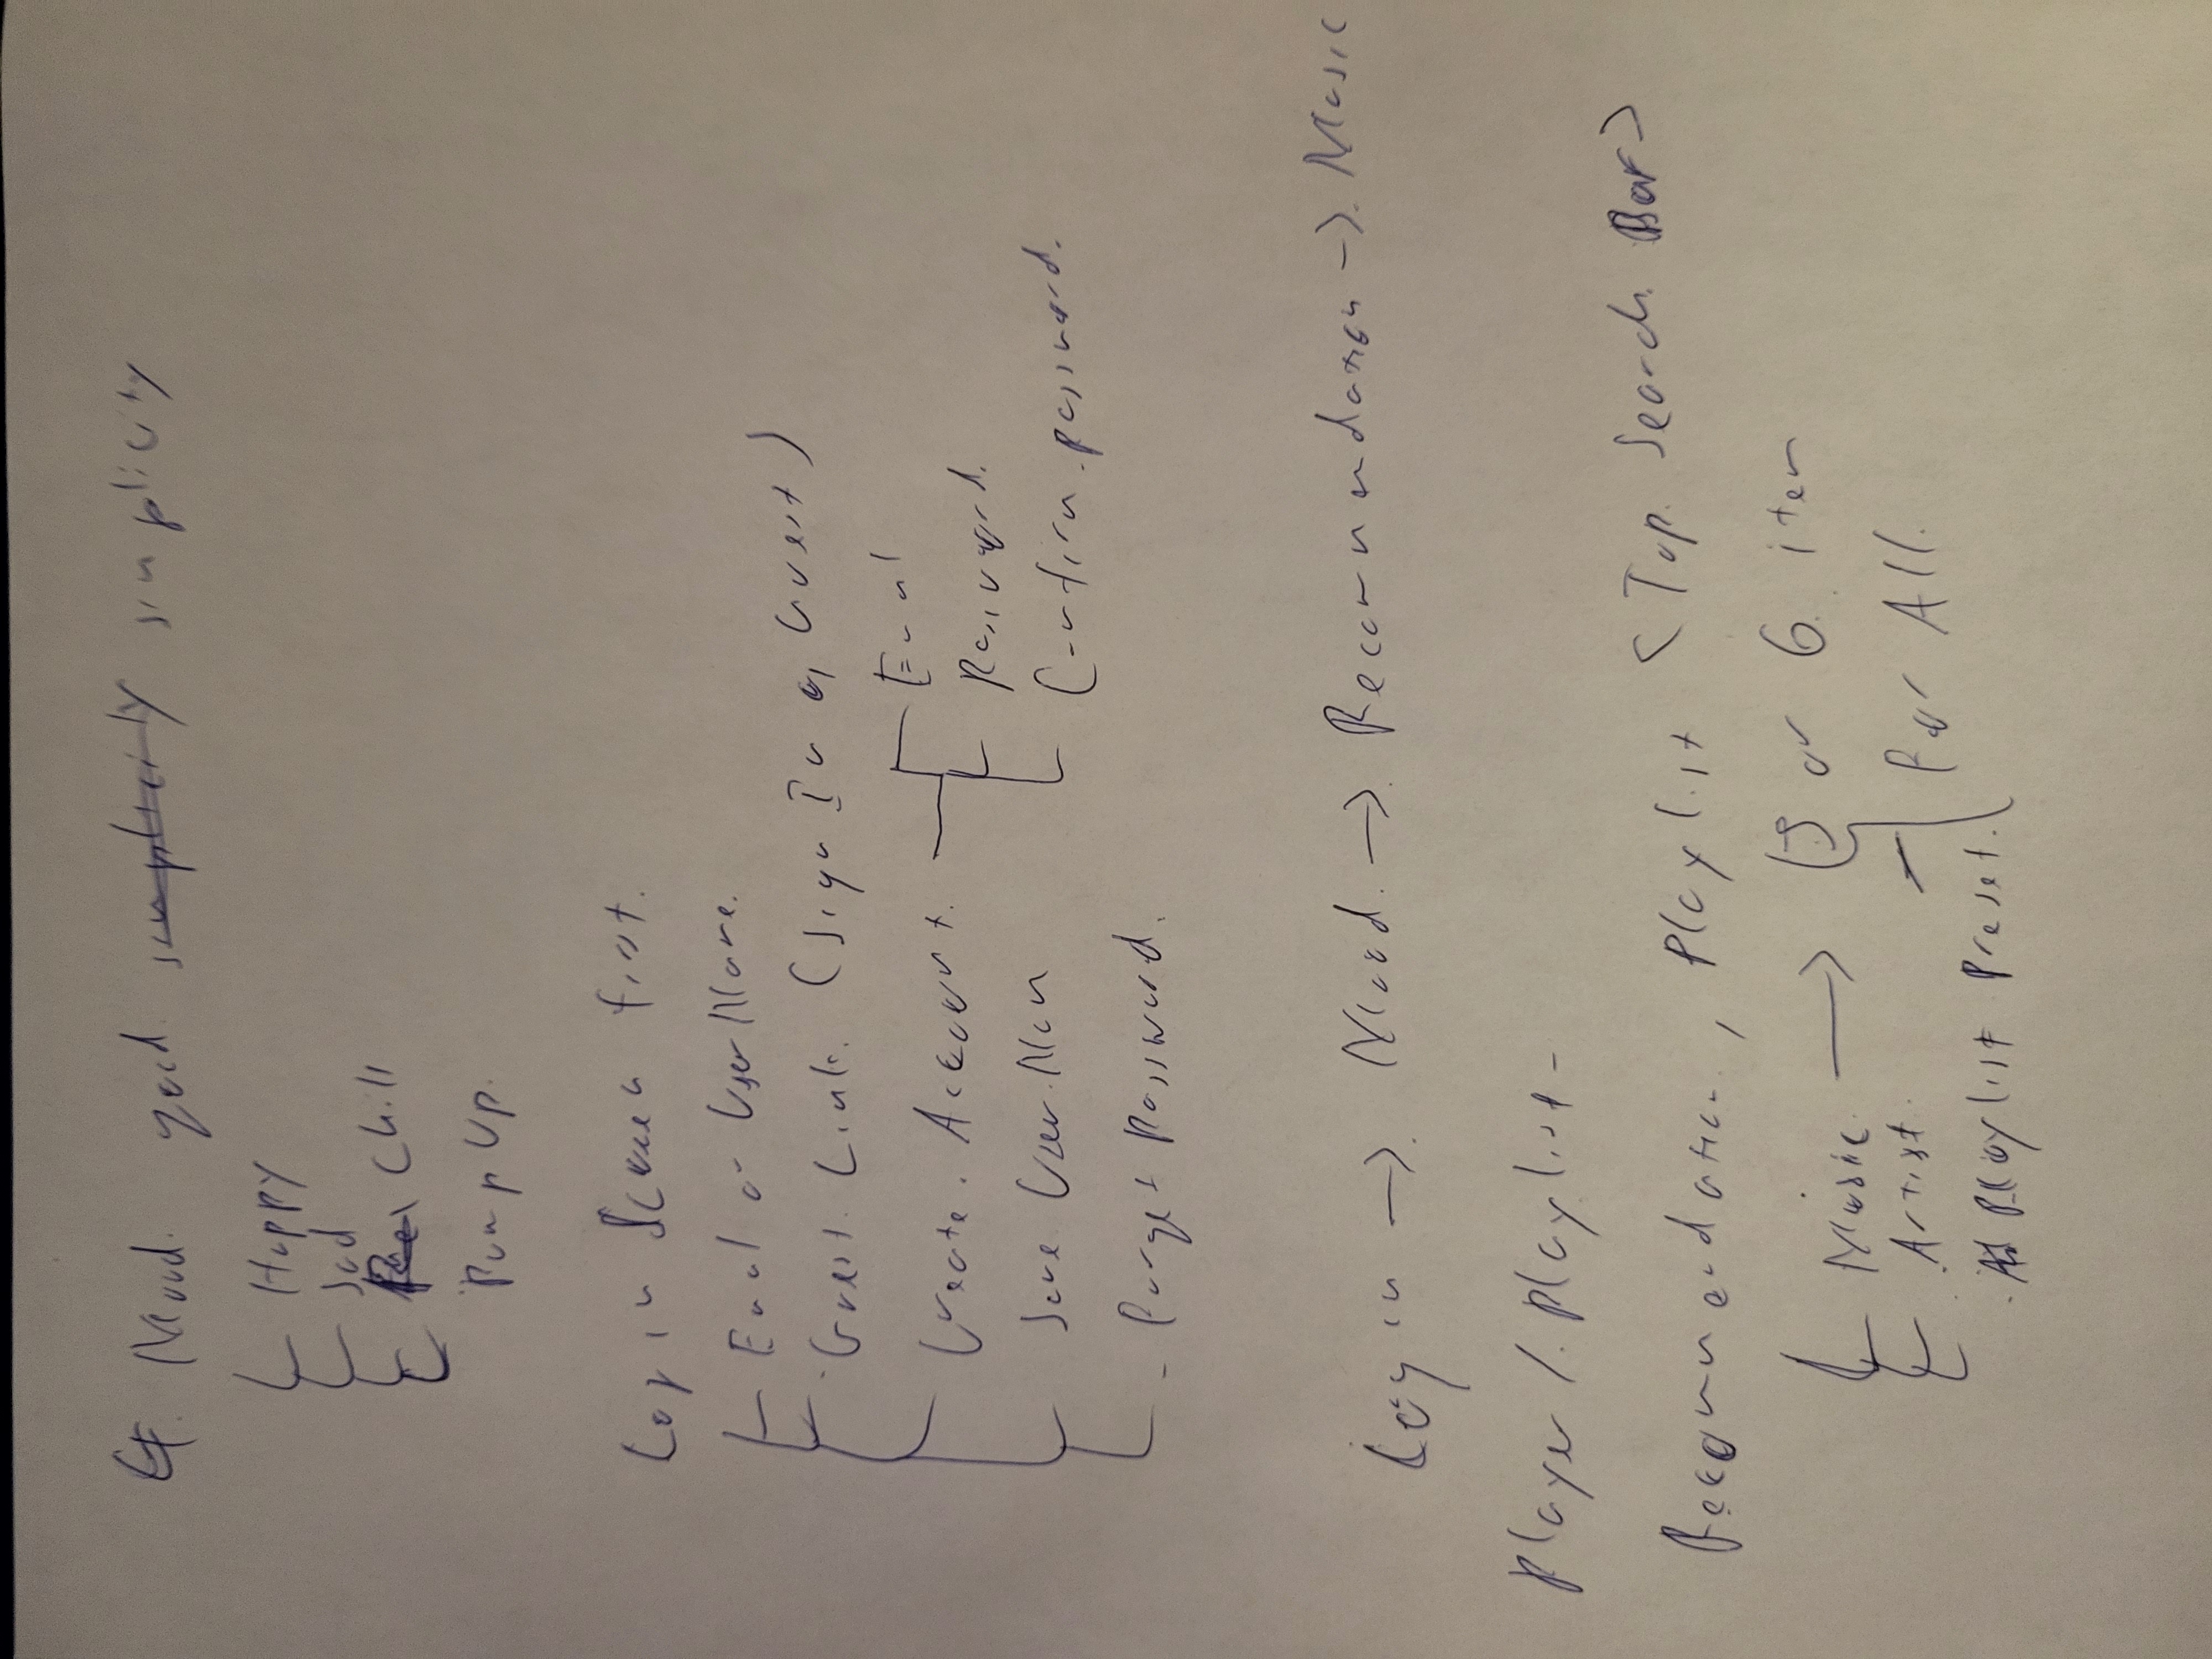 4. Mood. good. simplicity simplicity
Happy
Sad
Chill
Pump Up.
Log in Screen first.
Email or UserName.
Guest. Link. (Sign In as Guest)
Create. Account.
Email
Password.
Confirm password.
Save User.Nam
- Forget Password.
Log in → Mood. → Recommendation → Music
Player /. Playlist -
Recommendation, Playlist <Top. Search. Bar>
Music. → 5 or 6. item
Artist. For All.
Playlist Preset.